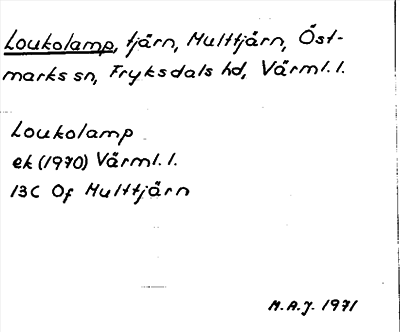 Loukolamp, tjärn, Multtjärn, Öst-
marks sn, Fryksdals hd, Värml. l.
Loukolamp
ek (1970) Värml. l.
13C Of Multtjärn
M.A.J. 1971